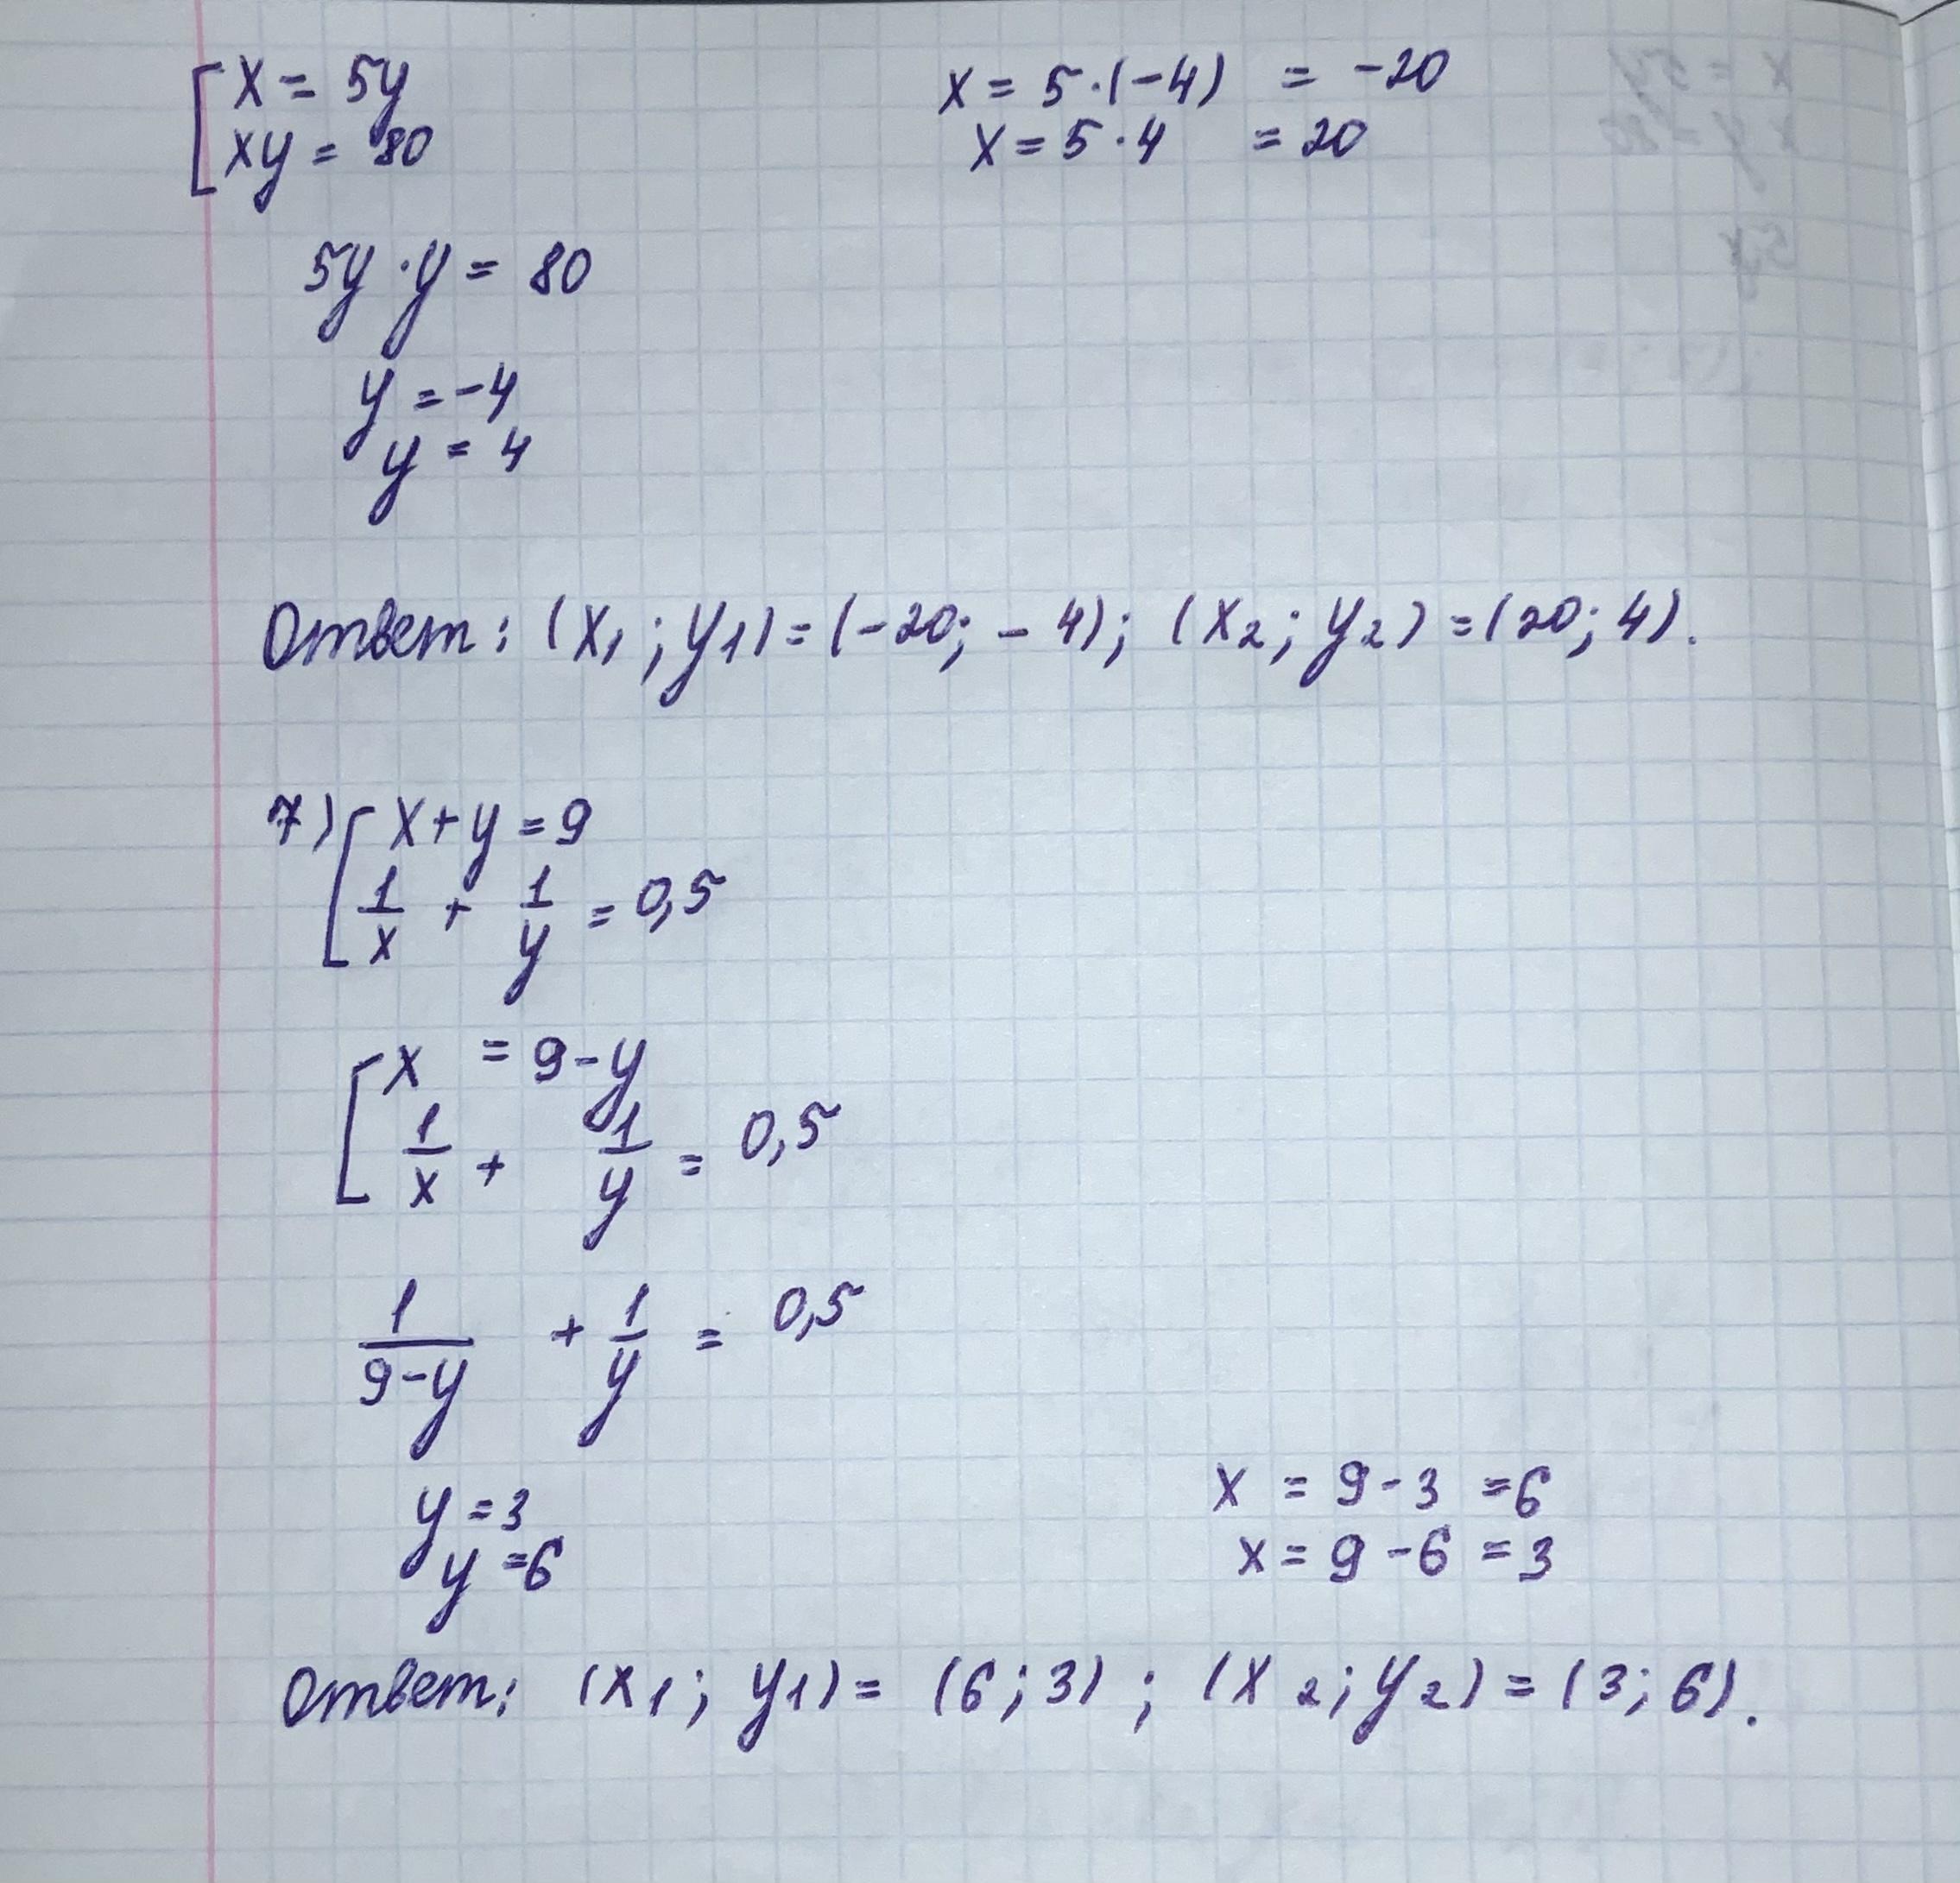 x = 5y
xy = 80
x = 5·(-4) = -20
x = 5·4 = 20
5y·y = 80
y = -4
y = 4
Ответ: (x₁; y₁) = (-20; -4); (x₂; y₂) = (20; 4).
7) x + y = 9
1/x + 1/y = 0,5
x = 9-y
1/x + 1/y = 0,5
1/(9-y) + 1/y = 0,5
y = 3
y = 6
x = 9-3 = 6
x = 9-6 = 3
Ответ: (x₁; y₁) = (6; 3); (x₂; y₂) = (3; 6).